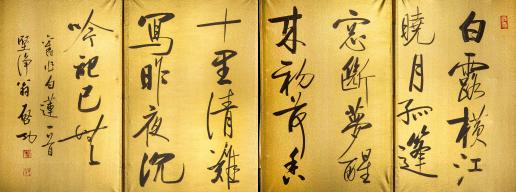 白露橫江
曉月孤篷
窗斷夢醒
來初荷香
十里清難
寫昨夜沉
吟記已無
舊作白蓮一首
堅淨翁启功